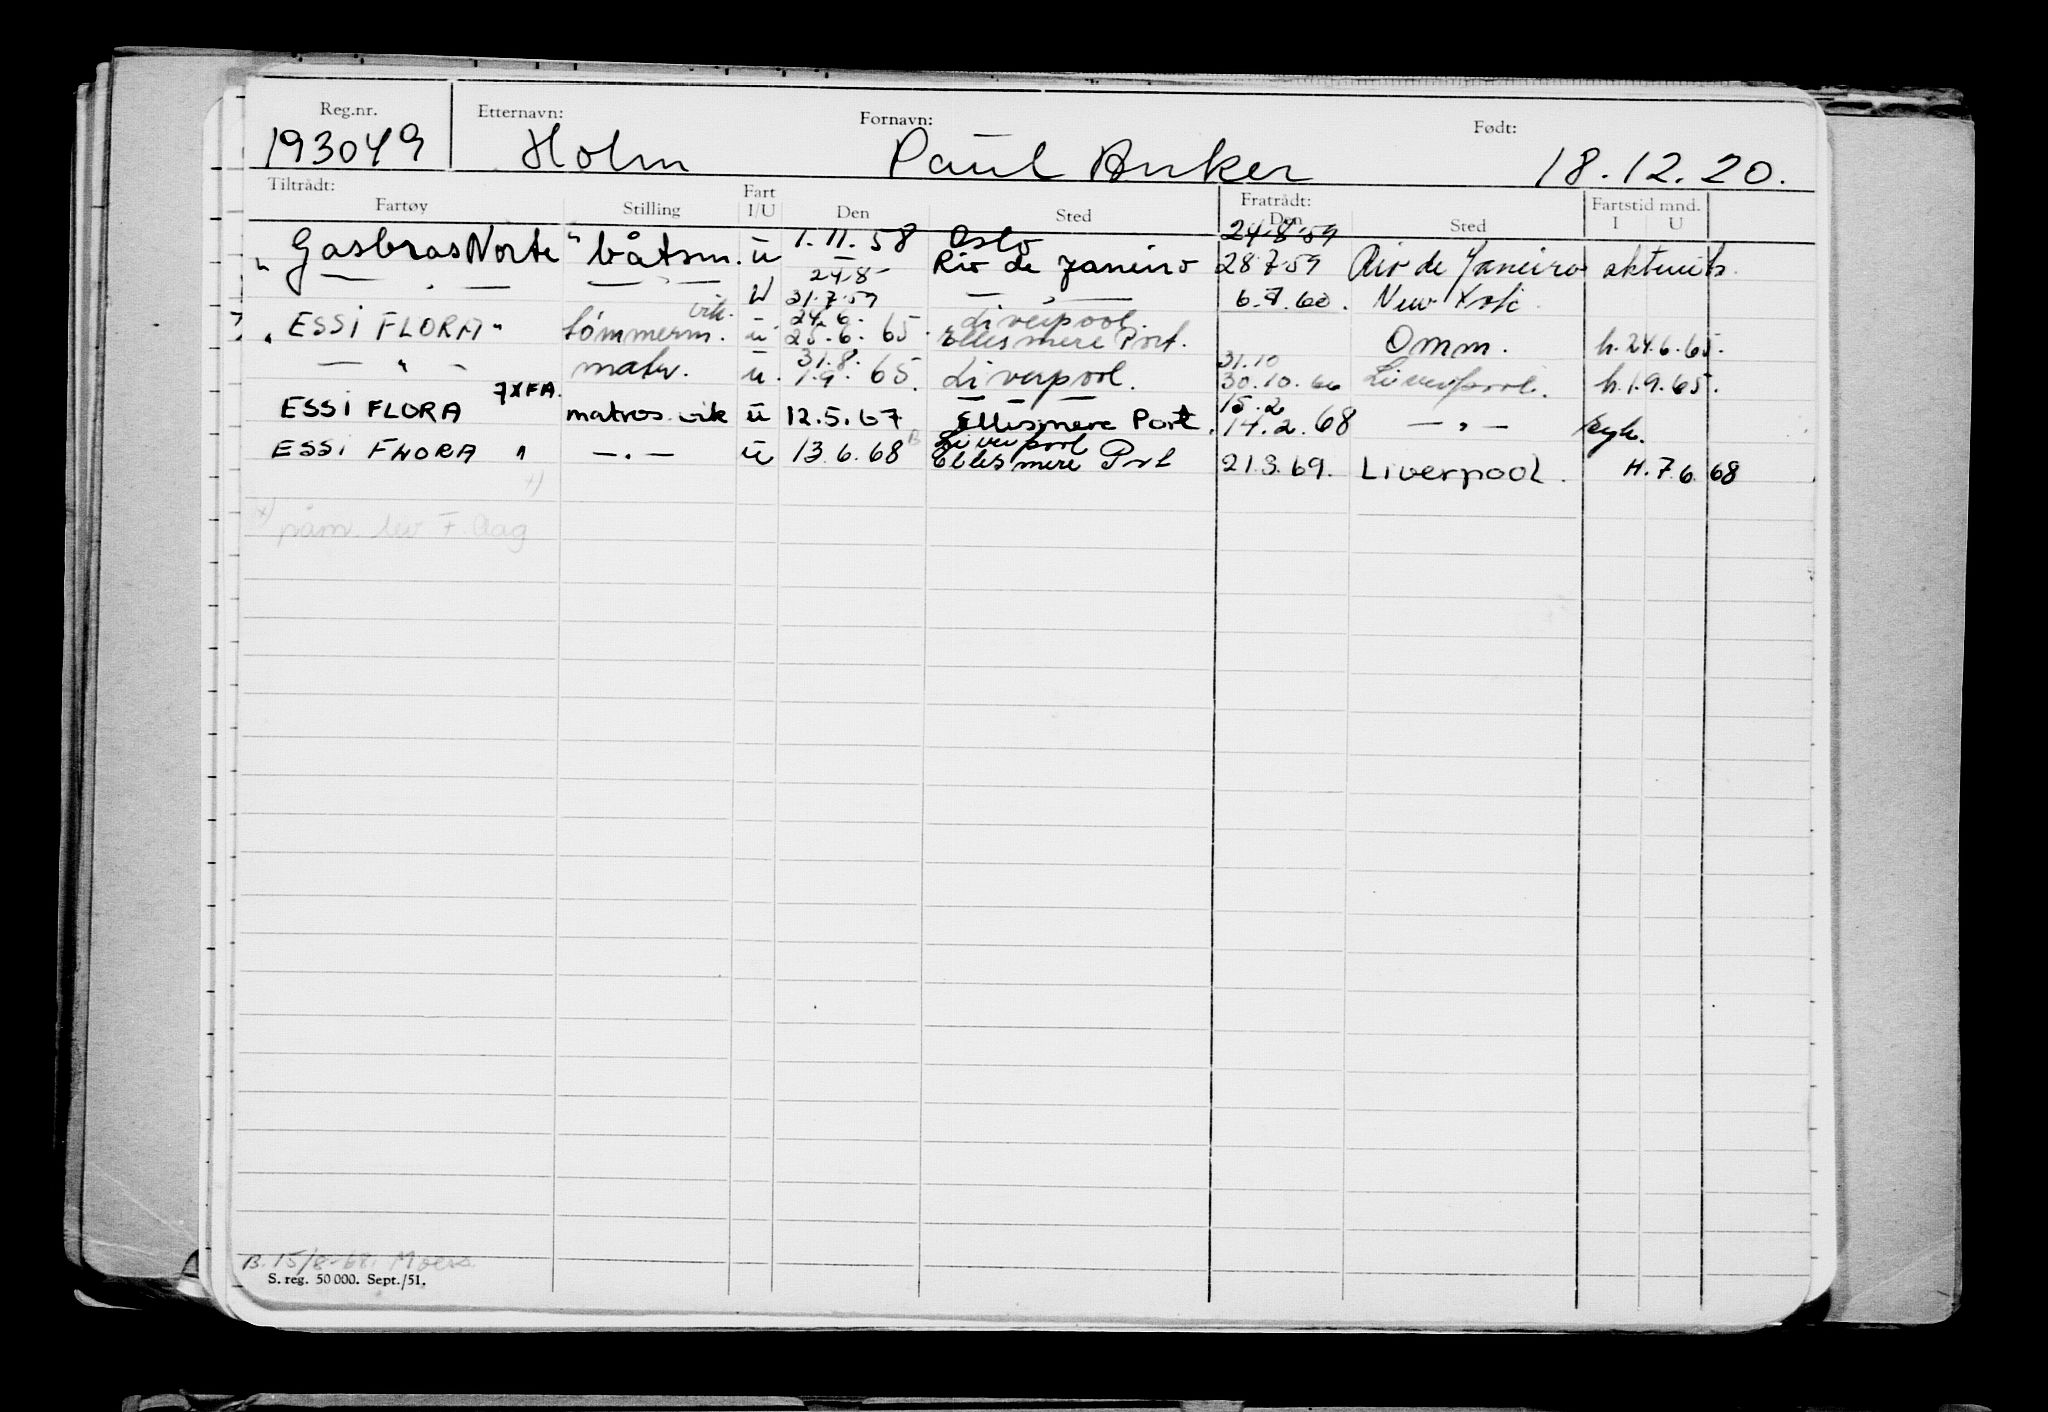 Reg.nr. Etternavn: Fornavn: Født:
193049 Holm Paul Anker 18.12.20.
Tiltrådt: Fratrådt:
Fartøy Stilling Fart I/U Den Sted Den Sted Fartstid mnd. I U
24.8.59
" Gasbras Norte " båtsm. u 1.11.58 Oslo
24.8 Rio de Janeiro 28.7.59 Rio de Janeiro
— " — — " — u 31.7.59 — " — 6.7.60. New York
vik. 24.6. Liverpool.
" ESSI FLORA " tømmerm. u 25.6.65. Ellesmere Port. Omm. h.24.6.65.
31.8. 31.10
— " — matr. u. 1.9.65. Liverpool. 30.10.66 Liverpool. h.1.9.65.
7XFA. 15.2
ESSI FLORA matros vik u 12.5.67 Ellesmere Port. 14.2.68 — " — syk.
Liverpool
ESSI FLORA " — " — u 13.6.68 Ellesmere Port 21.3.69. Liverpool. H.7.6.68
x)
x) påm. lev F. Aag
B. 15/8-68. Moss
S. reg. 50 000. Sept./51.